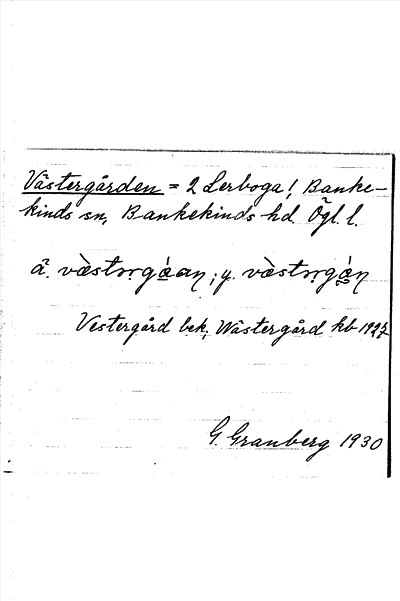 Västergården = 2 Lerboga !, Banke-
kinds sn, Bankekinds hd. Ögl. l.
ä. væ̀stǝrgá̱an, ; y. væ̀stǝrgá̱n
Vestergård bek.; Wästergård kb 1927
G. Granberg 1930